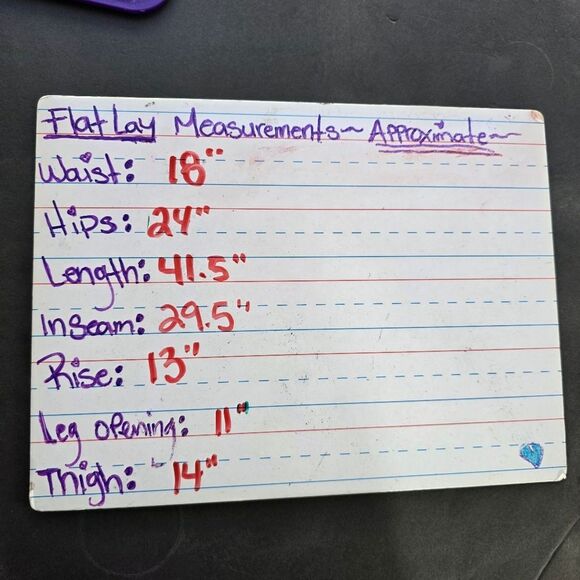 Flat Lay Measurements~ Approximate~
Waist: 18"
Hips: 24"
Length: 41.5"
Inseam: 29.5"
Rise: 13"
Leg opening: 11"
Thigh: 14"